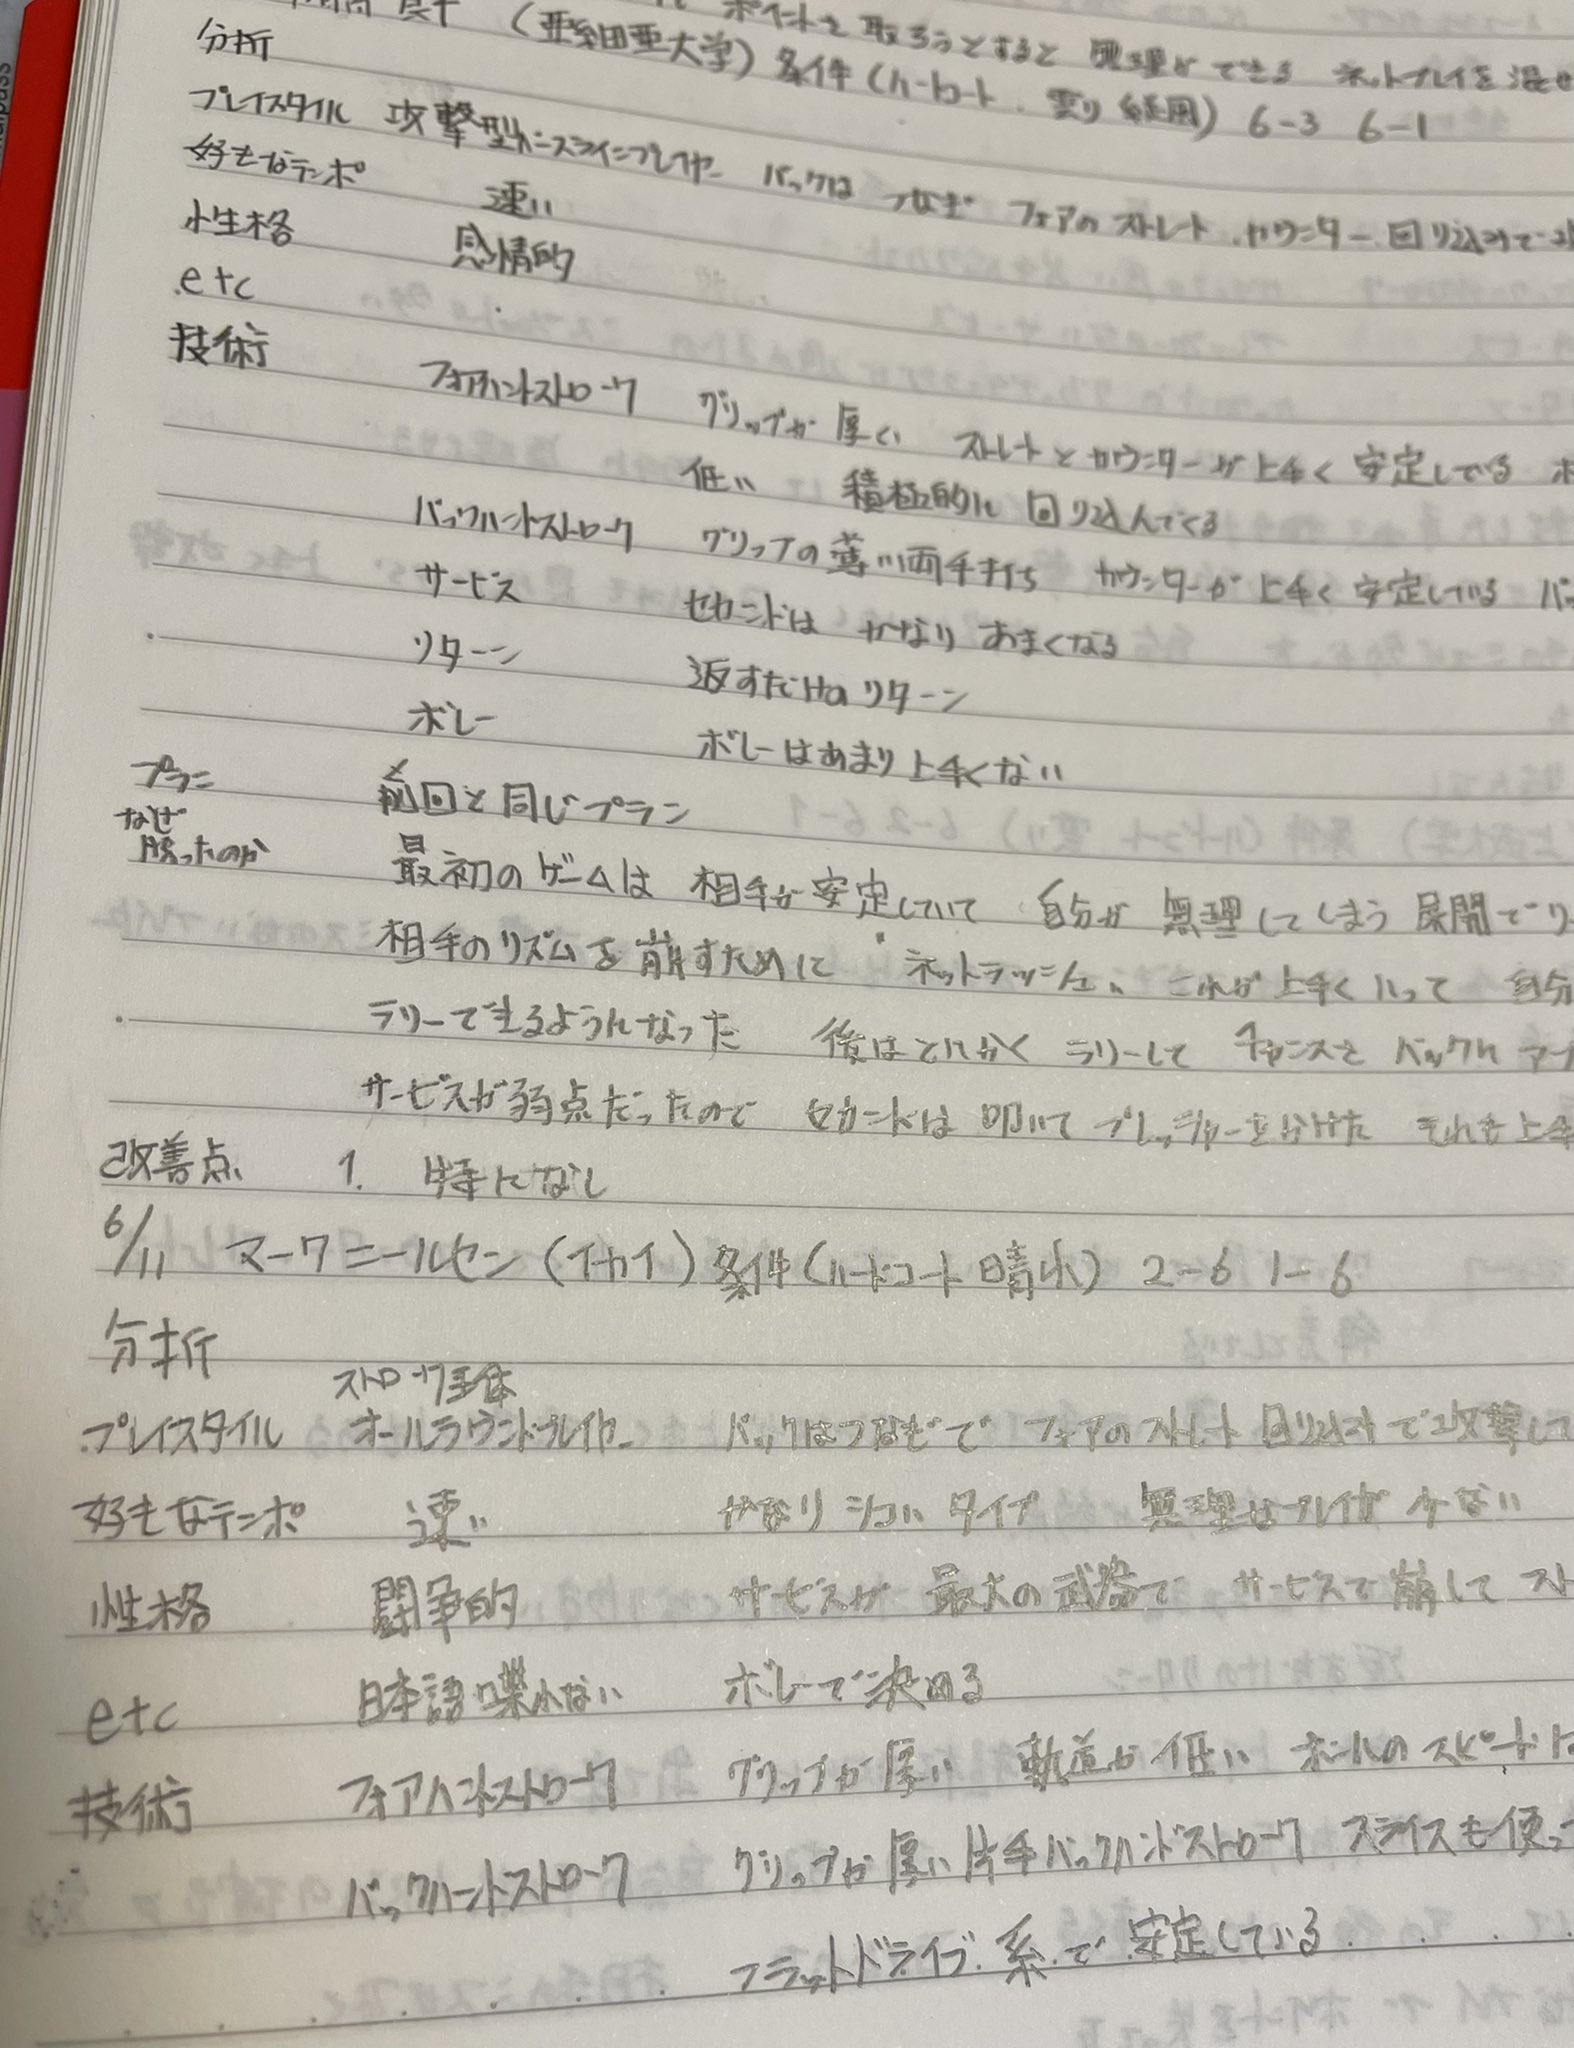 ポイントを取ろうとすると 無理が できる ネットプレイを混ぜ
(亜細亜大学) 条件 (ハードコート 曇り 6-3 6-1
分析
プレイスタイル 攻撃型ベースラインプレイヤー バックは つなぎ フォアのストレート カウンター 回り込みで
好きなテンポ 速い
性格 感情的
etc
技術 フォアハンドストローク グリップが厚い ストレートとカウンターが上手く安定している
低い 積極的に回り込んでくる
バックハンドストローク グリップの薄い両手打ち カウンターが上手く安定している
サービス セカンドは かなり あまくなる
リターン 返すだけのリターン
ボレー ボレーはあまり上手くない
プラン 前回と同じプラン
なぜ
勝ったのか 最初のゲームは 相手が安定していて 自分が無理してしまう展開で
相手のリズムを崩すために ネットラッシュ、これが上手くいって 自分
ラリーできるようになった 後はとにかく ラリーして チャンスを バックに
サービスが弱点だったので セカンドは叩いて プレッシャーをかけた それも上手
改善点 1. 特になし
6/11 マークニールセン (イカイ) 条件 (ハードコート 晴れ) 2-6 1-6
分析
ストローク主体
プレイスタイル オールラウンドプレイヤー バックはつなぎで フォアのストレート 回り込みで攻撃して
好きなテンポ 速い かなりシコいタイプ 無理なプレイが少ない
性格 闘争的 サービスが 最大の武器で サービスで崩して スト
etc 日本語喋れない ボレーで決める
技術 フォアハンドストローク グリップが厚い 軌道が低い ボールのスピード
バックハンドストローク グリップが厚い片手バックハンドストローク スライスも使っ
フラットドライブ系で安定している